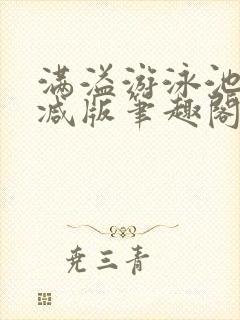 满溢游泳池
减版笔趣阁
尧三青